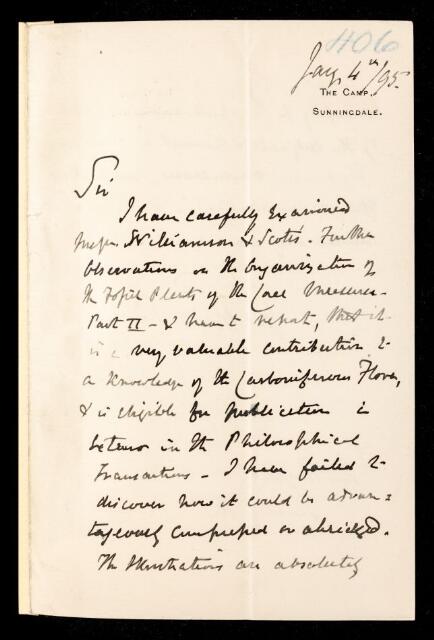 406
Jany 4th/95.
THE CAMP,
SUNNINGDALE.
Sir
I have carefully examined
Messrs Williamson & Scott's. Further
Observations on the Organization of
the Fossil Plants of the Coal Measures-
Part II - & have to report, that it
is a very valuable contribution to
a knowledge of the Carboniferous Flora,
& is eligible for publication in
extenso in the Philosophical
Transactions - I have failed to
discover how it could be advan=
tageously compressed or abridged.
The Illustrations are absolutely